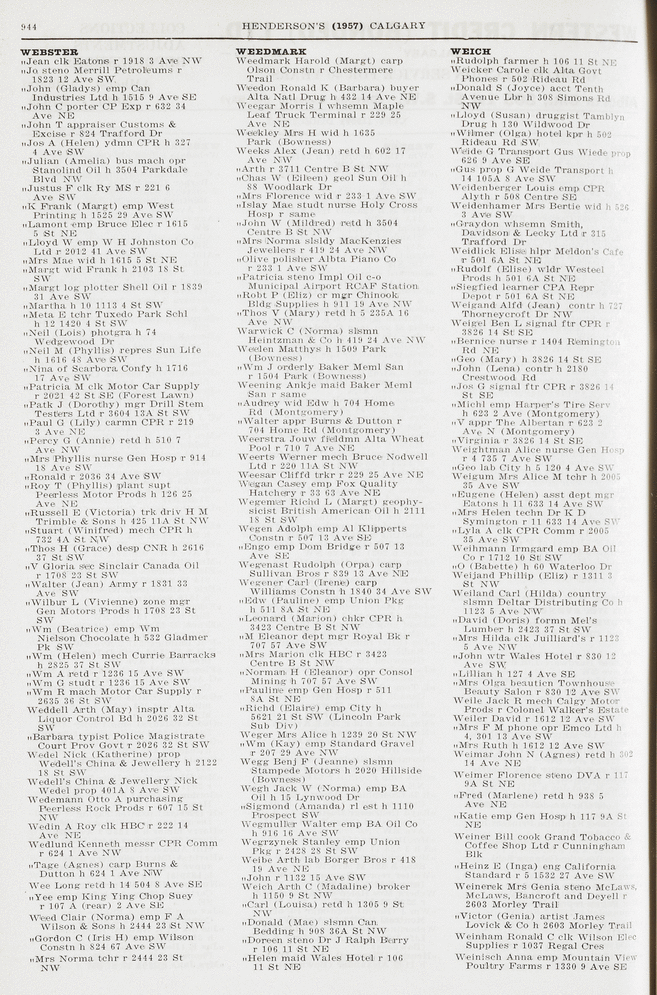 944
HENDERSON'S (1957) CALGARY
WEBSTER
„Jean clk Eatons r 1918 3 Ave NW
„Jo steno Merrill Petroleums r
1823 12 Ave SW
„John (Gladys) emp Can
Industries Ltd h 1515 9 Ave SE
„John C porter CP Exp r 632 34
Ave NE
„John T appraiser Customs &
Excise r 824 Trafford Dr
„Jos A (Helen) ydmn CPR h 327
4 Ave SW
„Julian (Amelia) bus mach opr
Stanolind Oil h 3504 Parkdale
Blvd NW
„Justus F clk Ry MS r 221 6
Ave SW
„K Frank (Margt) emp West
Printing h 1525 29 Ave SW
„Lamont emp Bruce Elec r 1615
5 St NE
„Lloyd W emp W H Johnston Co
Ltd r 2012 41 Ave SW
„Mrs Mae wid h 1615 5 St NE
„Margt wid Frank h 2103 18 St
SW
„Margt log plotter Shell Oil r 1839
31 Ave SW
„Martha h 10 1113 4 St SW
„Meta E tchr Tuxedo Park Schl
h 12 1420 4 St SW
„Neil (Lois) photgra h 74
Wedgewood Dr
„Neil M (Phyllis) repres Sun Life
h 1616 48 Ave SW
„Nina of Scarbora Confy h 1716
17 Ave SW
„Patricia M clk Motor Car Supply
r 2021 42 St SE (Forest Lawn)
„Patk J (Dorothy) mgr Drill Stem
Testers Ltd r 3604 13A St SW
„Paul G (Lily) carmn CPR r 219
3 Ave NE
„Percy G (Annie) retd h 510 7
Ave NW
„Mrs Phyllis nurse Gen Hosp r 914
18 Ave SW
„Ronald r 2036 34 Ave SW
„Roy T (Phyllis) plant supt
Peerless Motor Prods h 126 25
Ave NE
„Russell E (Victoria) trk driv H M
Trimble & Sons h 425 11A St NW
„Stuart (Winifred) mech CPR h
732 4A St NW
„Thos H (Grace) desp CNR h 2616
37 St SW
„V Gloria sec Sinclair Canada Oil
r 1708 23 St SW
„Walter (Jean) Army r 1831 33
Ave SW
„Wilbur L (Vivienne) zone mgr
Gen Motors Prods h 1708 23 St
SW
„Wm (Beatrice) emp Wm
Nielson Chocolate h 532 Gladmer
Pk SW
„Wm (Helen) mech Currie Barracks
h 2825 37 St SW
„Wm A retd r 1236 15 Ave SW
„Wm G studt r 1236 15 Ave SW
„Wm R mach Motor Car Supply r
2635 36 St SW
Weddell Arth (May) insptr Alta
Liquor Control Bd h 2026 32 St
SW
„Barbara typist Police Magistrate
Court Prov Govt r 2026 32 St SW
Wedel Nick (Katherine) prop
Wedell's China & Jewellery h 2122
18 St SW
Wedell's China & Jewellery Nick
Wedel prop 401A 8 Ave SW
Wedemann Otto A purchasing
Peerless Rock Prods r 607 15 St
NW
Wedin A Roy clk HBC r 222 14
Ave NE
Wedlund Kenneth messr CPR Comm
r 624 1 Ave NW
„Tage (Agnes) carp Burns &
Dutton h 624 1 Ave NW
Wee Long retd h 14 504 8 Ave SE
„Yee emp King Ying Chop Suey
r 107 A (rear) 2 Ave SE
Weed Clair (Norma) emp F A
Wilson & Sons h 2444 23 St NW
„Gordon C (Iris H) emp Wilson
Constn h 824 67 Ave SW
„Mrs Norma tchr r 2444 23 St
NW
WEEDMARK
Weedmark Harold (Margt) carp
Olson Constn r Chestermere
Trail
Weedon Ronald K (Barbara) buyer
Alta Natl Drug h 432 14 Ave NE
Weegar Morris I whsemn Maple
Leaf Truck Terminal r 229 25
Ave NE
Weekley Mrs H wid h 1635
Park (Bowness)
Weeks Alex (Jean) retd h 602 17
Ave NW
„Arth r 3711 Centre B St NW
„Chas W (Eileen) geol Sun Oil h
88 Woodlark Dr
„Mrs Florence wid r 233 1 Ave SW
„Islay Mae studt nurse Holy Cross
Hosp r same
„John W (Mildred) retd h 3504
Centre B St NW
„Mrs Norma slsldy MacKenzies
Jewellers r 419 24 Ave NW
„Olive polisher Albta Piano Co
r 233 1 Ave SW
„Patricia steno Impl Oil c-o
Municipal Airport RCAF Station
„Robt P (Eliz) cr mgr Chinook
Bldg Supplies h 911 19 Ave NW
„Thos V (Mary) retd h 5 235A 16
Ave NW
Warwick C (Norma) slsmn
Heintzman & Co h 419 24 Ave NW
Weelen Matthys h 1509 Park
(Bowness)
„Wm J orderly Baker Meml San
r 1504 Park (Bowness)
Weening Ankje maid Baker Meml
San r same
„Audrey wid Edw h 704 Home
Rd (Montgomery)
„Walter appr Burns & Dutton r
704 Home Rd (Montgomery)
Weerstra Jouw fieldmn Alta Wheat
Pool r 710 7 Ave NE
Weerts Werner mech Bruce Nodwell
Ltd r 220 11A St NW
Weesar Cliffd trkr r 229 25 Ave NE
Wegan Casey emp Fox Quality
Hatchery r 33 63 Ave NE
Wegener Richd L (Margt) geophy-
sicist British American Oil h 2111
18 St SW
Wegen Adolph emp Al Klipperts
Constn r 507 13 Ave SE
„Engo emp Dom Bridge r 507 13
Ave SE
Wegenast Rudolph (Orpa) carp
Sullivan Bros r 839 13 Ave NE
Wegener Carl (Irene) carp
Williams Constn h 1840 34 Ave SW
„Edw (Pauline) emp Union Pkg
h 511 8A St NE
„Leonard (Marion) chkr CPR h
3423 Centre B St NW
„M Eleanor dept mgr Royal Bk r
707 57 Ave SW
„Mrs Marion clk HBC r 3423
Centre B St NW
„Norman H (Eleanor) opr Consol
Mining h 707 57 Ave SW
„Pauline emp Gen Hosp r 511
8A St NE
„Richd (Elaire) emp City h
5621 21 St SW (Lincoln Park
Sub Div)
Weger Mrs Alice h 1239 20 St NW
„Wm (Kay) emp Standard Gravel
r 207 29 Ave NW
Wegg Benj F (Jeanne) slsmn
Stampede Motors h 2020 Hillside
(Bowness)
Wegh Jack W (Norma) emp BA
Oil h 15 Lynwood Dr
„Sigmond (Amanda) rl est h 1110
Prospect SW
Wegmuller Walter emp BA Oil Co
h 916 16 Ave SW
Wegrzynek Stanley emp Union
Pkg r 2428 28 St SW
Weibe Arth lab Borger Bros r 418
19 Ave NE
„John r 1132 15 Ave SW
Weich Arth C (Madaline) broker
h 1150 9 St NW
„Carl (Louisa) retd h 1305 9 St
NW
„Donald (Mae) slsmn Can
Bedding h 908 36A St NW
„Doreen steno Dr J Ralph Berry
r 106 11 St NE
„Helen maid Wales Hotel r 106
11 St NE
WEICH
„Rudolph farmer h 106 11 St NE
Weicker Carole clk Alta Govt
Phones r 502 Rideau Rd
„Donald S (Joyce) acct Tenth
Avenue Lbr h 308 Simons Rd
NW
„Lloyd (Susan) druggist Tamblyn
Drug h 130 Wildwood Dr
„Wilmer (Olga) hotel kpr h 502
Rideau Rd SW
Weide G Transport Gus Wiede prop
626 9 Ave SE
„Gus prop G Weide Transport h
14 105A 8 Ave SW
Weidenberger Louis emp CPR
Alyth r 508 Centre SE
Weidenhamer Mrs Bertie wid h 526
3 Ave SW
„Graydon whsemn Smith,
Davidson & Lecky Ltd r 315
Trafford Dr
Weidlick Elise hlpr Meldon's Cafe
r 501 6A St NE
„Rudolf (Elise) wldr Westeel
Prods h 501 6A St NE
„Siegfied learner CPA Repr
Depot r 501 6A St NE
Weigand Alfd (Jean) contr h 727
Thorneycroft Dr NW
Weigel Ben L signal ftr CPR r
3826 14 St SE
„Bernice nurse r 1404 Remington
Rd NE
„Geo (Mary) h 3826 14 St SE
„John (Lena) contr h 2180
Crestwood Rd
„Jos G signal ftr CPR r 3826 14
St SE
„Michl emp Harper's Tire Serv
h 623 2 Ave (Montgomery)
„V appr The Albertan r 623 2
Ave N (Montgomery)
„Virginia r 3826 14 St SE
Weightman Alice nurse Gen Hosp
r 4 735 7 Ave SW
„Geo lab City h 5 120 4 Ave SW
Weigum Mrs Alice M tchr h 2005
35 Ave SW
„Eugene (Helen) asst dept mgr
Eatons h 11 633 14 Ave SW
„Mrs Helen techn Dr K D
Symington r 11 633 14 Ave SW
„Lyla A clk CPR Comm r 2005
35 Ave SW
Weihmann Irmgard emp BA Oil
Co r 1712 10 St SW
„O (Babette) h 60 Waterloo Dr
Weijand Phillip (Eliz) r 1311 3
St NW
Weiland Carl (Hilda) country
slsmn Deltar Distributing Co h
1123 5 Ave NW
„David (Doris) formn Mel's
Lumber h 2423 37 St SW
„Mrs Hilda clk Juilliard's r 1123
5 Ave NW
„John wtr Wales Hotel r 830 12
Ave SW
„Lillian h 127 4 Ave SE
„Mrs Olga beauticn Townhouse
Beauty Salon r 830 12 Ave SW
Weile Jack R mech Calgy Motor
Prods r Colonel Walker's Estate
Weiler David r 1612 12 Ave SW
„Mrs F M phone opr Emco Ltd h
4, 301 13 Ave SW
„Mrs Ruth h 1612 12 Ave SW
Weimar John N (Agnes) retd h 302
14 Ave NE
Weimer Florence steno DVA r 117
9A St NE
„Fred (Marlene) retd h 938 5
Ave NE
„Katie emp Gen Hosp h 117 9A St
NE
Weiner Bill cook Grand Tobacco &
Coffee Shop Ltd r Cunningham
Blk
„Heinz E (Inga) eng California
Standard r 5 1532 27 Ave SW
Weinerek Mrs Genia steno McLaws,
McLaws, Bancroft and Deyell r
2603 Morley Trail
„Victor (Genia) artist James
Lovick & Co h 2603 Morley Trail
Weinham Ronald C clk Wilson Elec
Supplies r 1037 Regal Cres
Weinisch Anna emp Mountain View
Poultry Farms r 1330 9 Ave SE